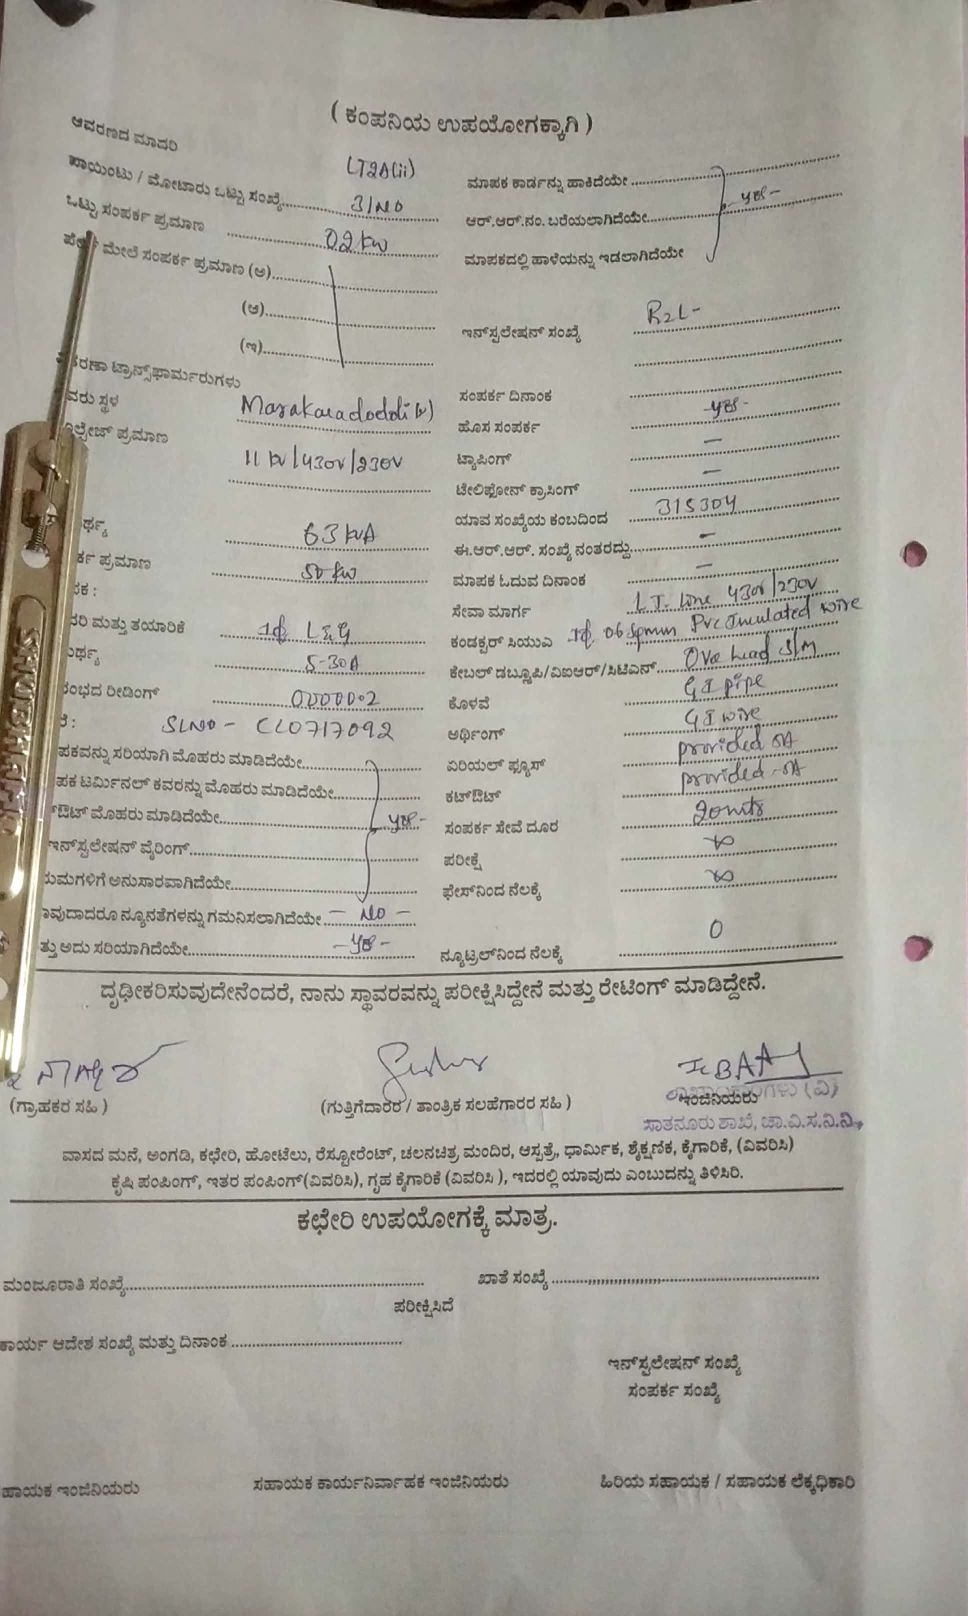 ( ಕಂಪನಿಯ ಉಪಯೋಗಕ್ಕಾಗಿ )
ಆವರಣದ ಮಾದರಿ
LT2A(ii)
ಪಾಯಿಂಟು / ಮೋಟಾರು ಒಟ್ಟು ಸಂಖ್ಯೆ 3/NO
ಒಟ್ಟು ಸಂಪರ್ಕ ಪ್ರಮಾಣ 0.2 KW
ಮೇಲೆ ಸಂಪರ್ಕ ಪ್ರಮಾಣ (ಅ)
(ಆ)
(ಇ)
ಟ್ರಾನ್ಸ್‌ಫಾರ್ಮರುಗಳು
ಸ್ಥಳ Marakaradoddi (v)
ಪ್ರಮಾಣ
11 KV/430V/230V
63 KVA
ಪ್ರಮಾಣ 50 KW
ಮತ್ತು ತಯಾರಿಕೆ 1ф L&G
5-30A
ರೀಡಿಂಗ್ 0000002
SLNO - CL0717092
ಸರಿಯಾಗಿ ಮೊಹರು ಮಾಡಿದೆಯೇ
ಟರ್ಮಿನಲ್ ಕವರನ್ನು ಮೊಹರು ಮಾಡಿದೆಯೇ
ಮೊಹರು ಮಾಡಿದೆಯೇ yes-
ಇನ್‌ಸ್ಟಲೇಷನ್ ವೈರಿಂಗ್
ಅನುಸಾರವಾಗಿದೆಯೇ
ನ್ಯೂನತೆಗಳನ್ನು ಗಮನಿಸಲಾಗಿದೆಯೇ - NO -
ಅದು ಸರಿಯಾಗಿದೆಯೇ - yes -
ಮಾಪಕ ಕಾರ್ಡನ್ನು ಹಾಕಿದೆಯೇ
ಆರ್.ಆರ್.ನಂ. ಬರೆಯಲಾಗಿದೆಯೇ - yes -
ಮಾಪಕದಲ್ಲಿ ಹಾಳೆಯನ್ನು ಇಡಲಾಗಿದೆಯೇ
ಇನ್‌ಸ್ಟಲೇಷನ್ ಸಂಖ್ಯೆ R2L-
ಸಂಪರ್ಕ ದಿನಾಂಕ
ಹೊಸ ಸಂಪರ್ಕ -yes-
ಟ್ಯಾಪಿಂಗ್ —
ಟೇಲಿಫೋನ್ ಕ್ರಾಸಿಂಗ್ —
ಯಾವ ಸಂಖ್ಯೆಯ ಕಂಬದಿಂದ 315304
ಈ.ಆರ್.ಆರ್. ಸಂಖ್ಯೆ ನಂತರದ್ದು —
ಮಾಪಕ ಓದುವ ದಿನಾಂಕ —
ಸೇವಾ ಮಾರ್ಗ L.T. Line 430V/230V
ಕಂಡಕ್ಟರ್ ಸಿಯುಎ 1ф 06 Sqmm Pvc Insulated wire
ಕೇಬಲ್ ಡಬ್ಲ್ಯೂಪಿ/ವಿಐಆರ್/ಸಿಟಿಎಸ್ Over head S/M
ಕೊಳವೆ G I pipe
ಅರ್ಥಿಂಗ್ G I wire
ಏರಿಯಲ್ ಫ್ಯೂಸ್ provided 5A
ಕಟ್‌ಔಟ್ provided -5A
ಸಂಪರ್ಕ ಸೇವೆ ದೂರ 20mts
ಪರೀಕ್ಷೆ ∞
ಫೇಸ್‌ನಿಂದ ನೆಲಕ್ಕೆ ∞
ನ್ಯೂಟ್ರಲ್‌ನಿಂದ ನೆಲಕ್ಕೆ 0
ದೃಢೀಕರಿಸುವುದೇನೆಂದರೆ, ನಾನು ಸ್ಥಾವರವನ್ನು ಪರೀಕ್ಷಿಸಿದ್ದೇನೆ ಮತ್ತು ರೇಟಿಂಗ್ ಮಾಡಿದ್ದೇನೆ.
(ಗ್ರಾಹಕರ ಸಹಿ )
(ಗುತ್ತಿಗೆದಾರರ / ತಾಂತ್ರಿಕ ಸಲಹೆಗಾರರ ಸಹಿ )
ಇಂಜಿನಿಯರು
(ವಿ)
ಸಾತನೂರು ಶಾಖೆ, ಚಾ.ವಿ.ಸ.ನಿ.ನಿ.,
ವಾಸದ ಮನೆ, ಅಂಗಡಿ, ಕಛೇರಿ, ಹೋಟೆಲು, ರೆಸ್ಟೋರೆಂಟ್, ಚಲನಚಿತ್ರ ಮಂದಿರ, ಆಸ್ಪತ್ರೆ, ಧಾರ್ಮಿಕ, ಶೈಕ್ಷಣಿಕ, ಕೈಗಾರಿಕೆ, (ವಿವರಿಸಿ)
ಕೃಷಿ ಪಂಪಿಂಗ್, ಇತರ ಪಂಪಿಂಗ್(ವಿವರಿಸಿ), ಗೃಹ ಕೈಗಾರಿಕೆ (ವಿವರಿಸಿ ), ಇದರಲ್ಲಿ ಯಾವುದು ಎಂಬುದನ್ನು ತಿಳಿಸಿರಿ.
ಕಛೇರಿ ಉಪಯೋಗಕ್ಕೆ ಮಾತ್ರ.
ಮಂಜೂರಾತಿ ಸಂಖ್ಯೆ
ಖಾತೆ ಸಂಖ್ಯೆ
ಪರೀಕ್ಷಿಸಿದೆ
ಕಾರ್ಯ ಆದೇಶ ಸಂಖ್ಯೆ ಮತ್ತು ದಿನಾಂಕ
ಇನ್‌ಸ್ಟಲೇಷನ್ ಸಂಖ್ಯೆ
ಸಂಪರ್ಕ ಸಂಖ್ಯೆ
ಹಾಯಕ ಇಂಜಿನಿಯರು
ಸಹಾಯಕ ಕಾರ್ಯನಿರ್ವಾಹಕ ಇಂಜಿನಿಯರು
ಹಿರಿಯ ಸಹಾಯಕ / ಸಹಾಯಕ ಲೆಕ್ಕಧಿಕಾರಿ